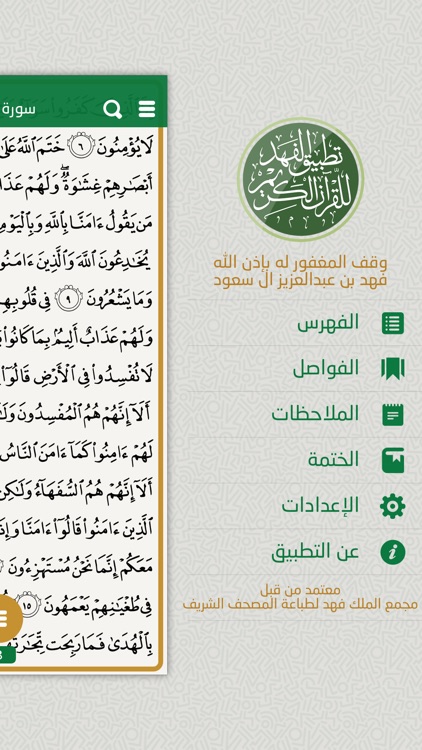 تطبيق الفهد
للقرآن الكريم
وقف المغفور له بإذن الله
فهد بن عبدالعزيز ال سعود
الفهرس
الفواصل
الملاحظات
الختمة
الإعدادات
عن التطبيق
معتمد من قبل
مجمع الملك فهد لطباعة المصحف الشريف
سورة
لَا يُؤْمِنُونَ ٦ خَتَمَ ٱللَّهُ عَلَىٰ
أَبْصَٰرِهِمْ غِشَٰوَةٌ ۖ وَلَهُمْ عَذَا
مَن يَقُولُ ءَامَنَّا بِٱللَّهِ وَبِٱلْيَوْمِ
يُخَٰدِعُونَ ٱللَّهَ وَٱلَّذِينَ ءَامَنُو
وَمَا يَشْعُرُونَ ٩ فِى قُلُوبِهِم
وَلَهُمْ عَذَابٌ أَلِيمٌۢ بِمَا كَانُوا۟
لَا تُفْسِدُوا۟ فِى ٱلْأَرْضِ قَالُوٓا۟
أَلَآ إِنَّهُمْ هُمُ ٱلْمُفْسِدُونَ وَلَٰ
لَهُمْ ءَامِنُوا۟ كَمَآ ءَامَنَ ٱلنَّاسُ
أَلَآ إِنَّهُمْ هُمُ ٱلسُّفَهَآءُ وَلَٰكِن
ٱلَّذِينَ ءَامَنُوا۟ قَالُوٓا۟ ءَامَنَّا وَإِذَ
مَعَكُمْ إِنَّمَا نَحْنُ مُسْتَهْزِءُونَ
فِى طُغْيَٰنِهِمْ يَعْمَهُونَ ١٥
بِٱلْهُدَىٰ فَمَا رَبِحَت تِّجَٰرَتُهُ